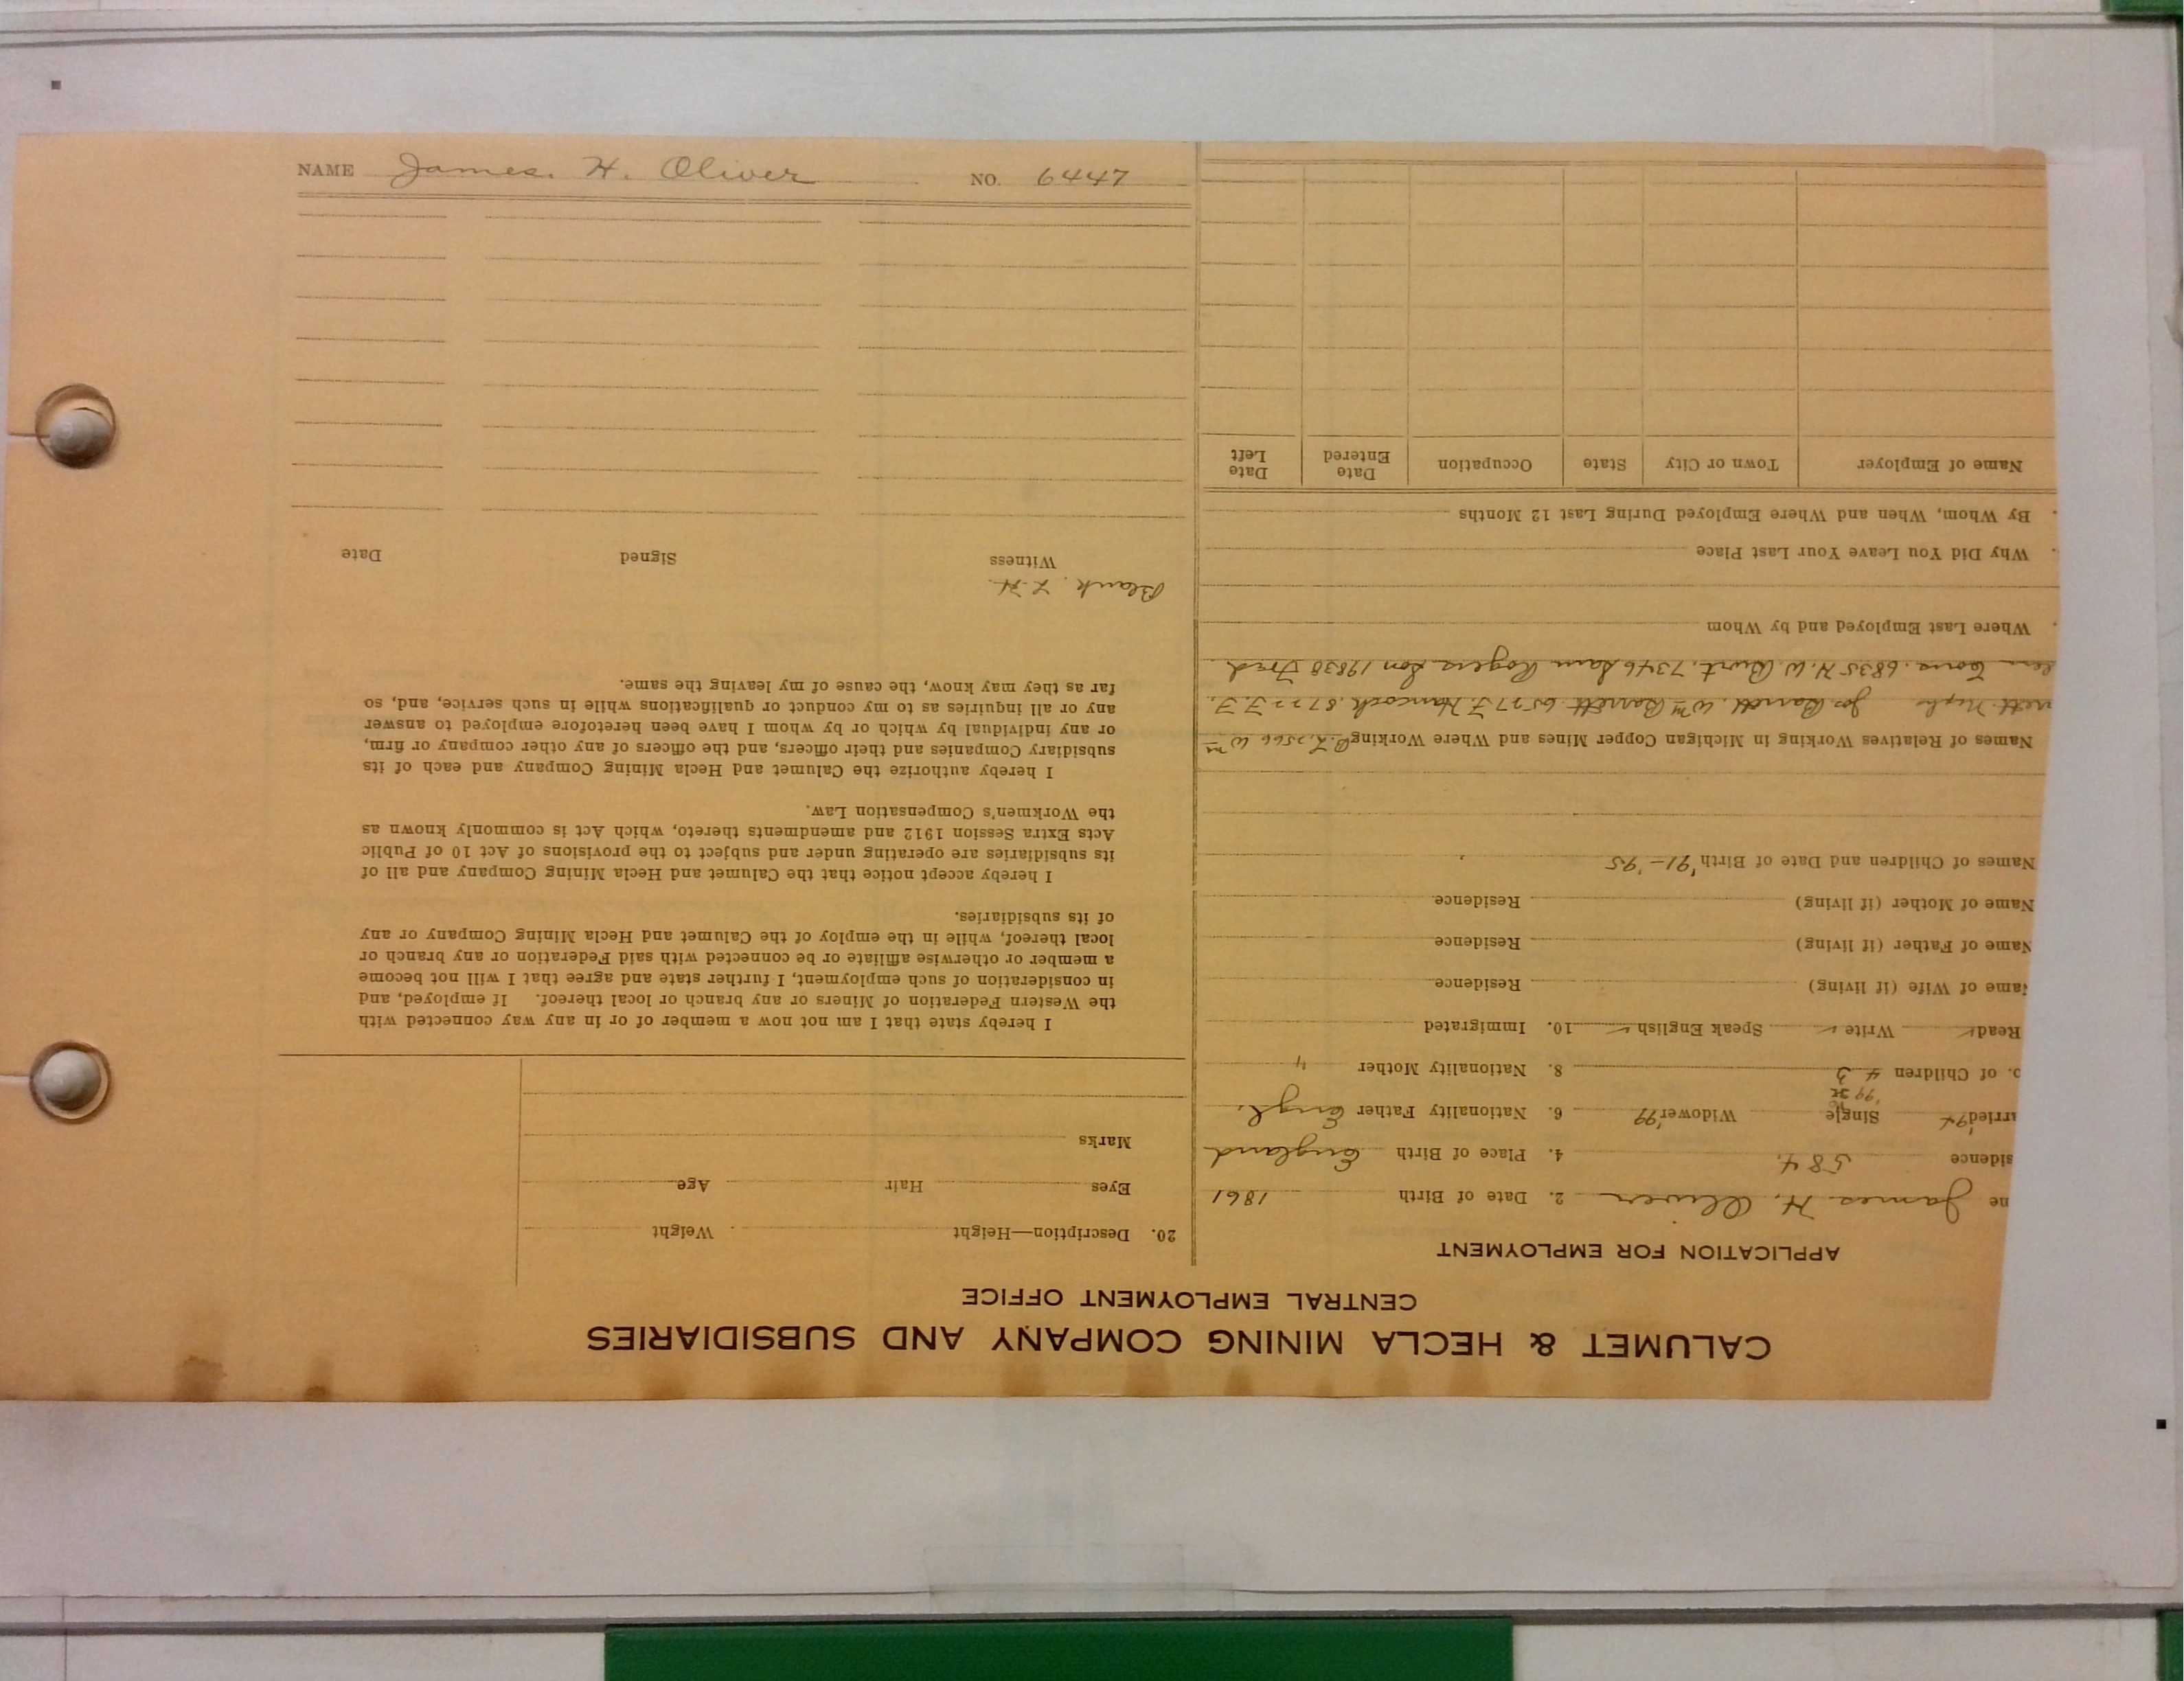 NAME James. H. Oliver NO. 6447
CALUMET & HECLA MINING COMPANY AND SUBSIDIARIES
CENTRAL EMPLOYMENT OFFICE
APPLICATION FOR EMPLOYMENT
ne James H. Oliver 2. Date of Birth 1861
sidence 584 4. Place of Birth England
rried '94 Single Widower '99 6. Nationality Father Engl.
'99
o. of Children 4 3 8. Nationality Mother "
Read ✓ Write ✓ Speak English ✓ 10. Immigrated
Name of Wife (if living) Residence
Name of Father (if living) Residence
Name of Mother (if living) Residence
Names of Children and Date of Birth '91 - '95
Names of Relatives Working in Michigan Copper Mines and Where Working 2566 Wm
Jos Barrett. Wm Barrett 6577 J. Hancock. 8722 J. J.
6835 H. W. Burt. 7346 Sam Rogers Son 19838 Fred
Where Last Employed and by Whom
Why Did You Leave Your Last Place
By Whom, When and Where Employed During Last 12 Months
Name of Employer Town or City State Occupation Date Entered Date Left
20. Description—Height Weight
Eyes Hair Age
Marks
I hereby state that I am not now a member of or in any way connected with
the Western Federation of Miners or any branch or local thereof. If employed, and
in consideration of such employment, I further state and agree that I will not become
a member or otherwise affiliate or be connected with said Federation or any branch or
local thereof, while in the employ of the Calumet and Hecla Mining Company or any
of its subsidiaries.
I hereby accept notice that the Calumet and Hecla Mining Company and all of
its subsidiaries are operating under and subject to the provisions of Act 10 of Public
Acts Extra Session 1912 and amendments thereto, which Act is commonly known as
the Workmen's Compensation Law.
I hereby authorize the Calumet and Hecla Mining Company and each of its
subsidiary Companies and their officers, and the officers of any other company or firm,
or any individual by which or by whom I have been heretofore employed to answer
any or all inquiries as to my conduct or qualifications while in such service, and, so
far as they may know, the cause of my leaving the same.
Blank. L. H.
Witness Signed Date